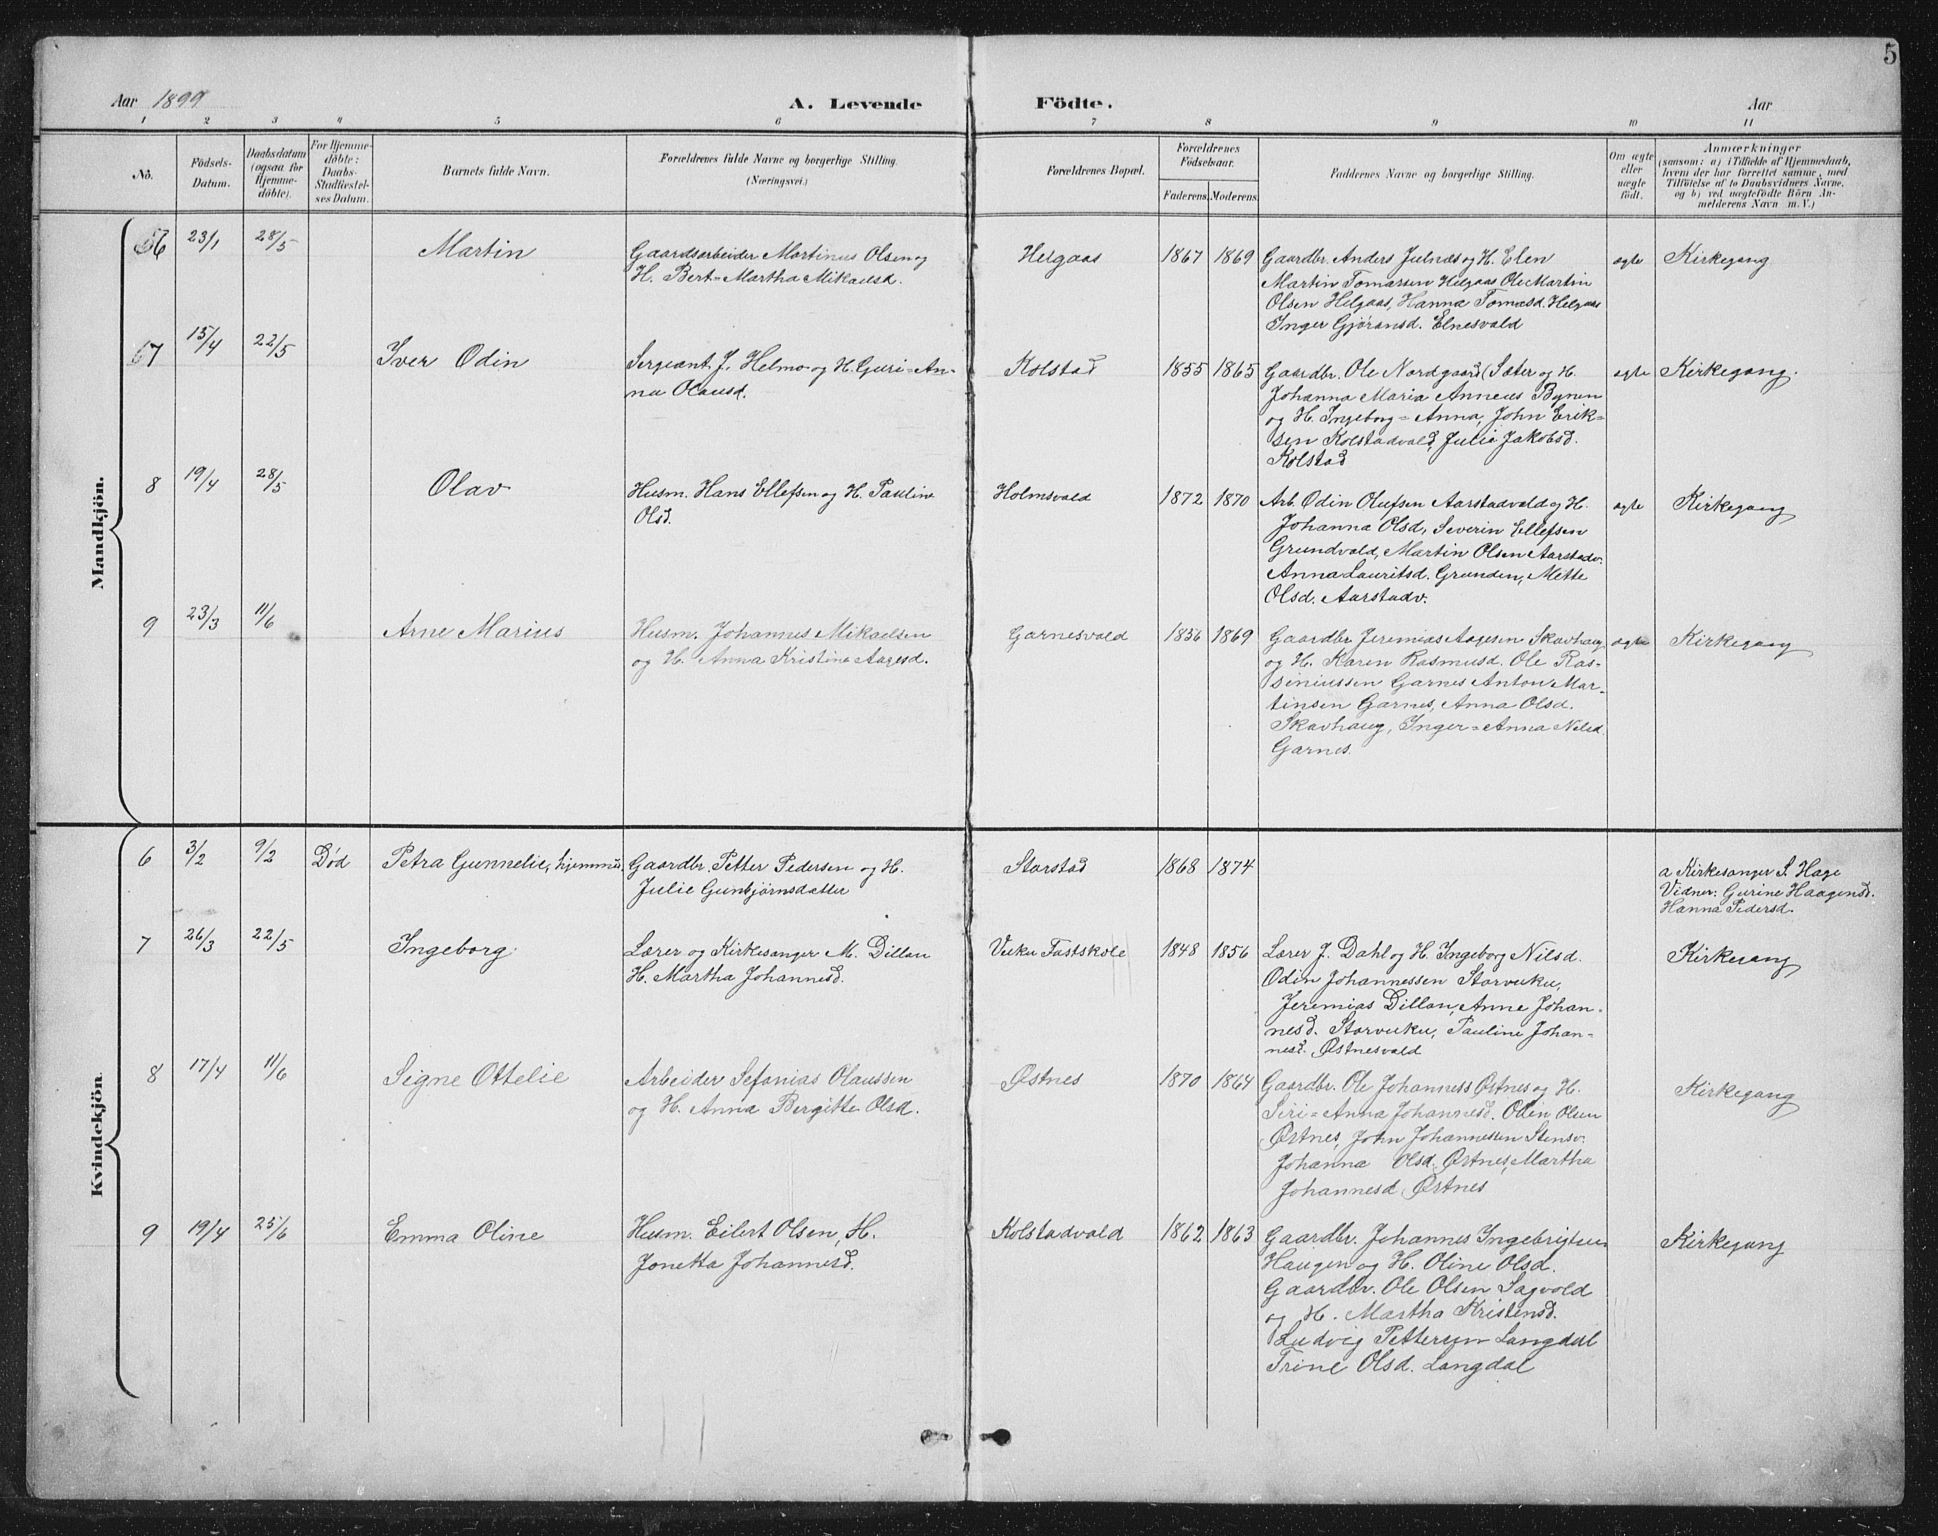 5
Aar 1899
A. Levende Födte.
Aar
1 2 3 4 5 6 7 8 9 10 11
No.
Födsels-Datum.
Daabsdatum (ogsaa for Hjemme-döbte).
For Hjemme-döbte: Daabs-Stadfæstel-ses Datum.
Barnets fulde Navn.
Forældrenes fulde Navne og borgerlige Stilling.
(Næringsvei.)
Forældrenes Bopæl.
Forældrenes Födselsaar.
Faderens. Moderens.
Faddernes Navne og borgerlige Stilling.
Om ægte eller uægte födt.
Anmærkninger
(saasom: a) i Tilfælde af Hjemmedaab,
hvem der har forrettet samme, med
Tilföielse af to Daabsvidners Navne,
og b) ved uægtefödte Börn An-
melderens Navn m. V.)
Mandkjön.
6 23/1 28/5 Martin
Gaardsarbeider Martinus Olsen og
H. Bert-Martha Mikaelsd.
Helgaas 1867 1869
Gaardbr. Anders Julnæs og H. Elen
Martin Tomassen Helgaas Ole Martin
Olsen Helgaas, Hanna Tomasd. Helgaas
Inger Gjøransd. Elnesvald
ægte Kirkegang
7 15/4 22/5 Iver Odin
Sergeant J. Helmo og H. Guri-An-
na Olausd.
Kolstad 1855 1865
Gaardbr. Ole Nordgaard (Sæter og H.
Johanna Maria Anneus Bynen
og H. Ingeborg-Anna, John Erik-
sen Kolstadvald, Julie Jakobsd.
Kolstad
ægte Kirkegang.
8 19/4 28/5 Olav
Husm. Hans Ellefsen og H. Pauline
Olsd.
Holmsvald 1872 1870
Arb. Odin Olufsen Aarstadvald og H.
Johanna Olsd, Severin Ellefsen
Grundvald, Martin Olsen Aarstadv.
Anna Lauritsd. Grunden, Mette
Olsd. Aarstadv.
ægte Kirkegang
9 23/3 11/6 Arne Marius
Husm. Johannes Mikaelsen
og H. Anna Kristine Aagesd.
Garnesvald 1856 1869
Gaardbr Jeremias Aagesen Skavhaug
og H. Karen Rasmusd. Ole Ras-
siniussen Garnes Anton Mar-
tinsen Garnes, Anna Olsd.
Skavhaug, Inger-Anna Nilsd.
Garnes.
ægte Kirkegang
Kvindekjön.
6 3/2 9/2 Död Petra Gunnelie, hjemme.
Gaardbr. Petter Pedersen og H.
Julie Gunbjørnsdatter
Storstad 1868 1874
a Kirkesanger S. Hage
Vidner: Gurine Haagensd.
Hanna Pedersd.
7 26/3 22/5 Ingeborg
Lærer og Kirkesanger M. Dillan
H. Martha Johannesd.
Vuku Fastskole 1848 1856
Lærer J. Dahl og H. Ingeborg Nilsd.
Odin Johannessen Storvuku,
Jeremias Dillan, Anne Johan-
nesd. Storvuku, Pauline Johan-
nesd. Østnesvald
Kirkegang
8 17/4 11/6 Signe Ottelie
Arbeider Sefanias Olaussen
og H. Anna Bergitte Olsd.
Østnes 1870 1864
Gaardbr. Ole Johanness Østnes og H.
Siri-Anna Johannesd. Odin Olsen
Østnes, John Johannessen Stensv.
Johanna Olsd. Østnes, Martha
Johannesd Østnes
Kirkegang
9 19/4 25/6 Emma Oline
Husm. Eilert Olsen, H.
Jonetta Johannesd.
Kolstadvald 1862 1863
Gaardbr. Johannes Ingebrigtsen
Haugen og H. Oline Olsd.
Gaardbr. Ole Olsen Sagvold
og H. Martha Kristensd.
Ludvig Pettersen Langdal
Trine Olsd. Langdal
Kirkegang